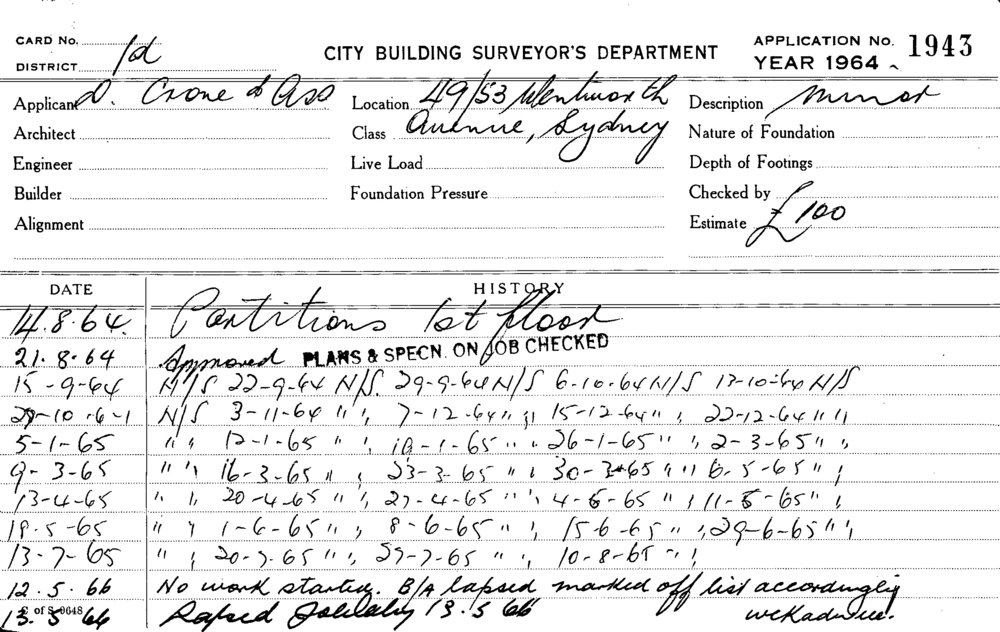 CARD No. 1d
DISTRICT
CITY BUILDING SURVEYOR'S DEPARTMENT
APPLICATION No. 1943
YEAR 1964
Applicant D. Crone & Ass Location 49/53 Wentworth Description Minor
Architect Class Avenue, Sydney Nature of Foundation
Engineer Live Load Depth of Footings
Builder Foundation Pressure Checked by
Alignment Estimate £100
DATE HISTORY
14.8.64. Partitions 1st floor
21.8.64 Approved PLANS & SPECN. ON JOB CHECKED
15-9-64 N/S 22-9-64 N/S. 29-9-64 N/S 6-10-64 N/S 13-10-64 N/S
N/S 3-11-64 " " 7-12-64 " " 15-12-64 " " 22-12-64 " "
5-1-65 " " 12-1-65 " " 19-1-65 " " 26-1-65 " " 2-3-65 " "
9-3-65 " " 16-3-65 " " 23-3-65 " " 30-3-65 " " 6-5-65 " "
13-4-65 " " 20-4-65 " " 27-4-65 " " 4-5-65 " " 11-5-65 " "
18-5-65 " " 1-6-65 " " 8-6-65 " " 15-6-65 " " 29-6-65 " "
13-7-65 " " 20-7-65 " " 27-7-65 " " 10-8-65 " "
12.5.66 No work started. B/A lapsed marked off list accordingly
13.5.66 Lapsed 13.5.66